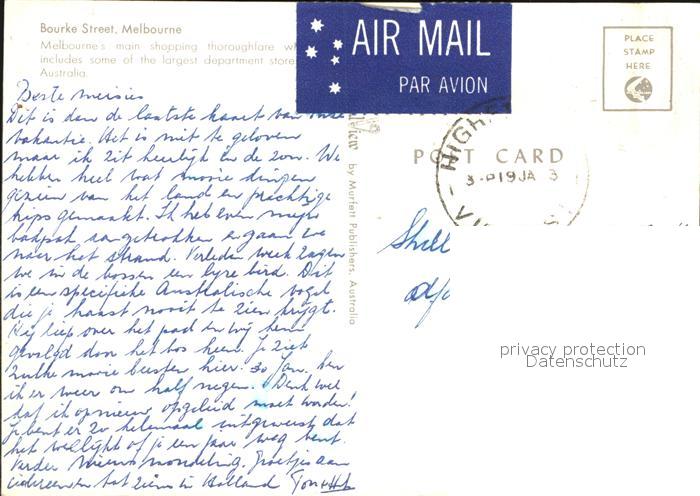 Bourke Street, Melbourne
Melbourne's main shopping thoroughfare
includes some of the largest department
Australia.
AIR MAIL
PAR AVION
PLACE
STAMP
HERE
POST CARD
3-P19JA 3
by Murfett Publishers, Australia
Beste meisies
Dit is dan de laatste kaart van onze
vakantie. Het is niet te geloven
maar ik zit heerlijk in de zon. We
hebben heel wat mooie dingen
gezien van het land en prachtige
trips gemaakt. Ik heb even mijn
badpak aangetrokken en gaan we
naar het strand. Verleden week zagen
we in de bossen een lyre bird. Dit
is een specifieke Australische vogel
die je haast nooit te zien krijgt.
Hij liep over het pad en wij hem
gevolgd door het bos heen. Je ziet
zulke mooie beesten hier. 30 Jan. ben
ik er weer om half negen. Denk wel
dat ik opnieuw opgeleid moet worden!
Je bent er zo helemaal uitgeweest dat
het wel lijkt of je een jaar weg bent.
Verder nieuws mondeling. Groetjes aan
iedereen en tot ziens in Holland
Shell
privacy protection
Datenschutz